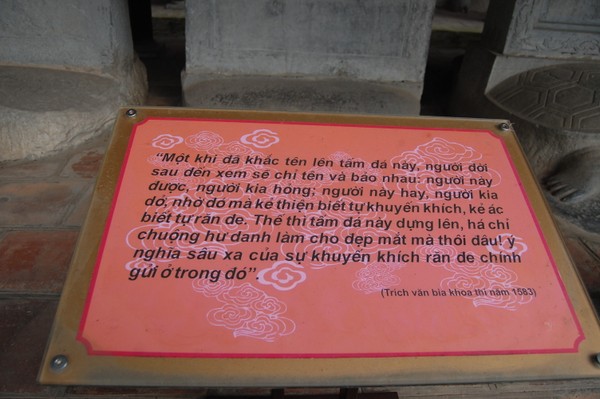 "Một khi đã khắc tên lên tấm đá này, người đời
sau đến xem sẽ chỉ tên và bảo nhau: người này
được, người kia hỏng; người này hay, người kia
dở, nhờ đó mà kẻ thiện biết tự khuyến khích, kẻ ác
biết tự răn đe. Thế thì tấm đá này dựng lên, há chỉ
chuộng hư danh làm cho đẹp mắt mà thôi đâu! ý
nghĩa sâu xa của sự khuyến khích răn đe chính
gửi ở trong đó".
(Trích văn bia khoa thi năm 1583)